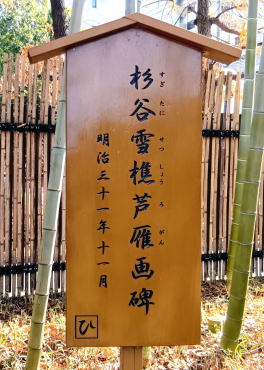 杉谷雪樵芦雁画碑
すぎ たに せつ しょう ろ がん
明治三十一年十一月
ひ